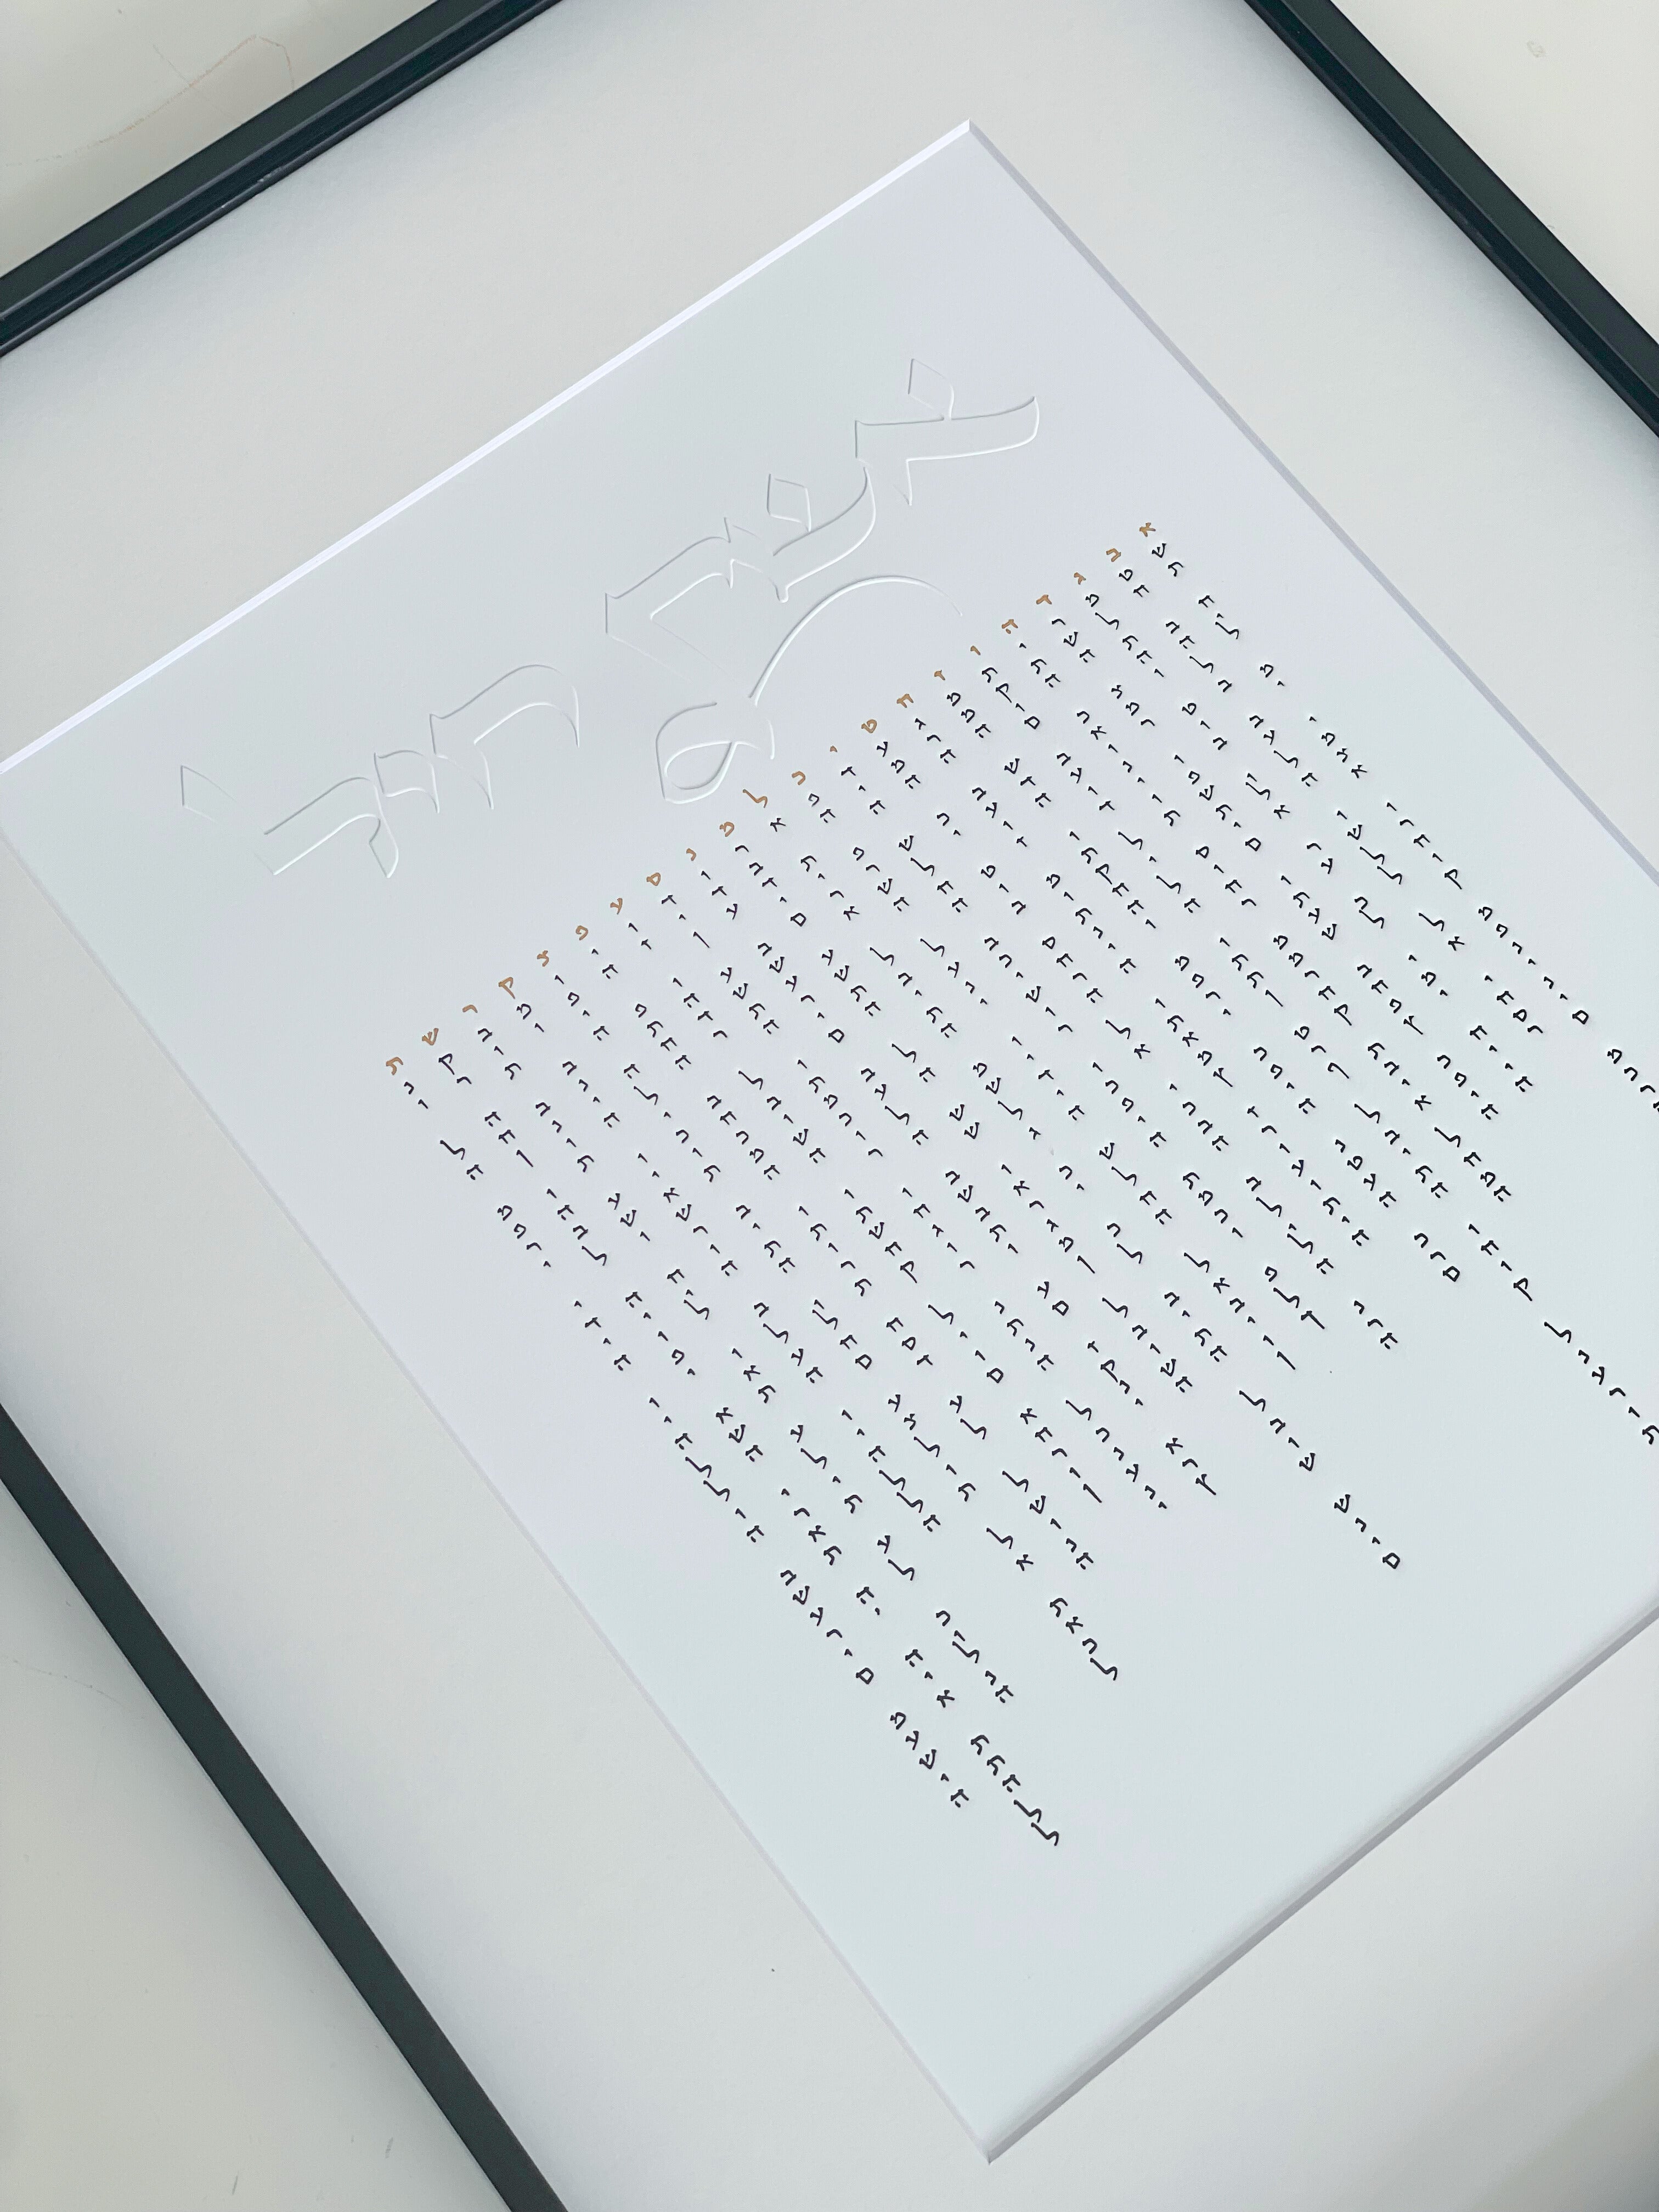 אשת חיל
אשת חיל מי ימצא ורחוק מפנינים מכרה
בטח בה לב בעלה ושלל לא יחסר
גמלתהו טוב ולא רע כל ימי חייה
דרשה צמר ופשתים ותעש בחפץ כפיה
היתה כאניות סוחר ממרחק תביא לחמה
ותקם בעוד לילה ותתן טרף לביתה וחוק
זממה שדה ותקחהו מפרי כפיה נטעה כרם
חגרה בעוז מתניה ותאמץ זרועותיה
טעמה כי טוב סחרה לא יכבה בלילה נרה
ידיה שלחה בכישור וכפיה תמכו פלך
כפה פרשה לעני וידיה שלחה לאביון
לא תירא לביתה משלג כי כל ביתה לבוש שנים
מרבדים עשתה לה שש וארגמן לבושה
נודע בשערים בעלה בשבתו עם זקני ארץ
סדין עשתה ותמכור וחגור נתנה לכנעני
עוז והדר לבושה ותשחק ליום אחרון
פיה פתחה בחכמה ותורת חסד על לשונה
צופיה הליכות ביתה ולחם עצלות לא תאכל
קמו בניה ויאשרוה בעלה ויהללה
רבות בנות עשו חיל ואת עלית על כולנה
שקר החן והבל היופי אשה יראת ה' היא תתהלל
תנו לה מפרי ידיה ויהללוה בשערים מעשיה